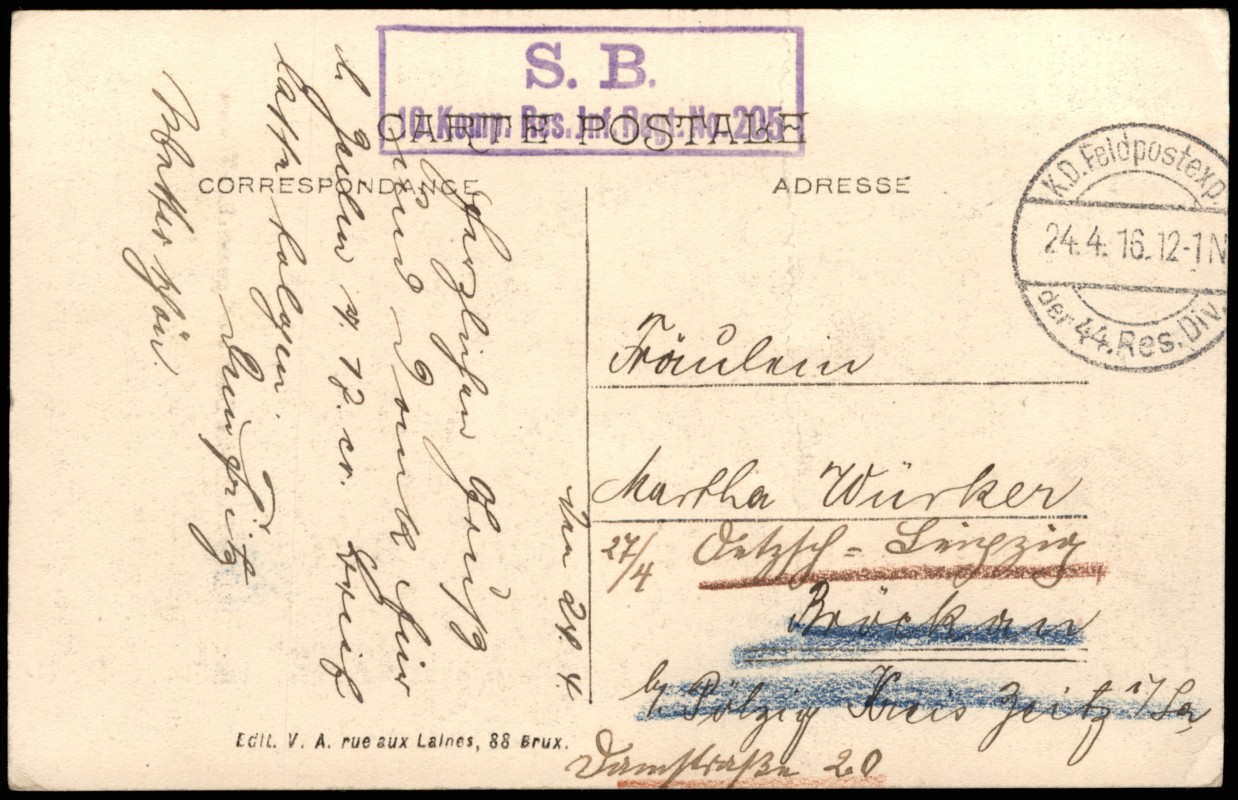 S. B.
10. Komp. Res. Inf. Regt. No. 205
CARTE POSTALE
CORRESPONDANCE
ADRESSE
K.D. Feldpostexp.
24.4.16. 12-1 N
der 44. Res. Div.
Den 24. 4.
Herzlichen Gruß
und Dank für
d. Zeilen v. 17. er. Brief
lasse folgen.
Dein Fritz
Wetter schön.
Fräulein
Martha Würker
27/4 Oetzsch = Leipzig
Bröckau
b/ Pölzig Kreis Zeitz i/Sa
Damstraße 20
Edit. V. A. rue aux Laines, 88 Brux.